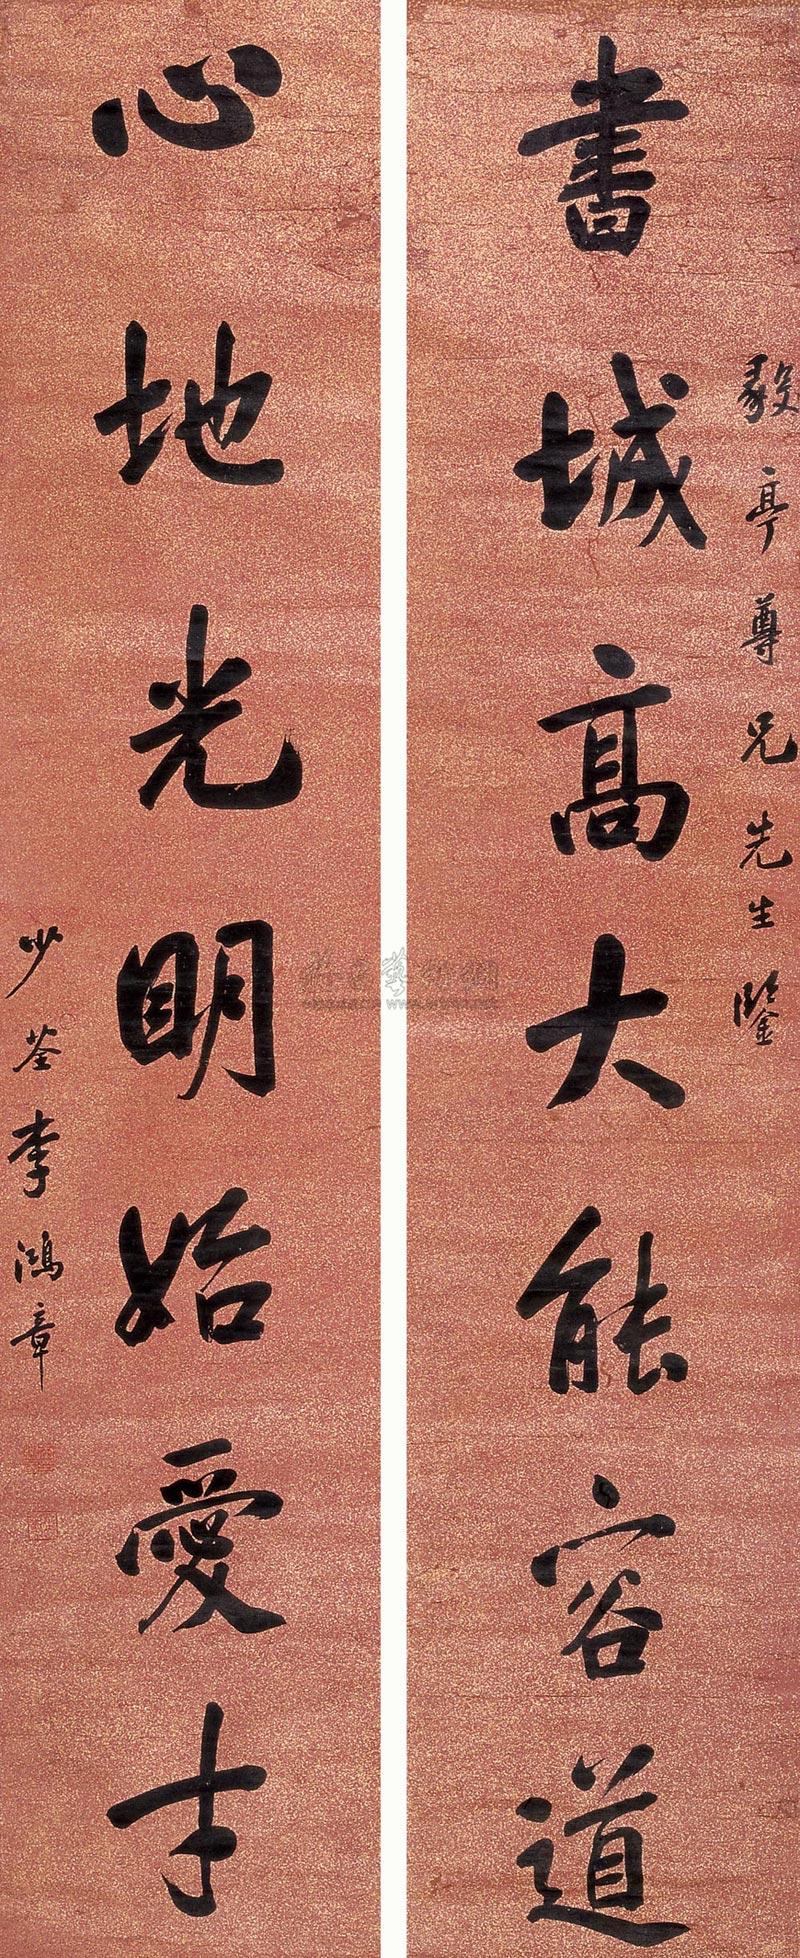 毅亭尊兄先生鑒
書城高大能容道
心地光明始愛才
少荃李鴻章